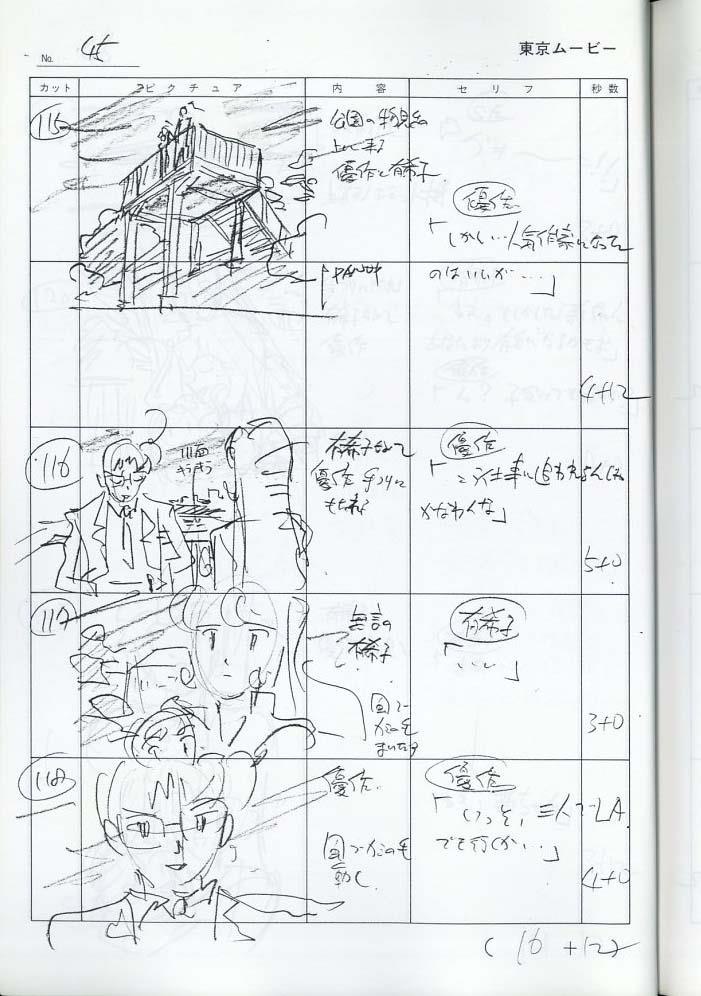 No. 45
東京ムービー
カット
ピクチュア
内 容
セリフ
秒数
115
公園の物見台
上に来る
優作と有希子
優作
「しかし…人気作家になって
のはいいが…」
PAN UP
4+12
116
川面
キラキラ
有希子なめて
優作 手すりに
もたれ
優作
「こう仕事に追われるんじゃ
かなわんな」
5+0
117
無言の
有希子
有希子
「……」
3+0
118
優作
動く
優作
「いっそ、三人でLA
でも行くか…」
4+0
(16+12)